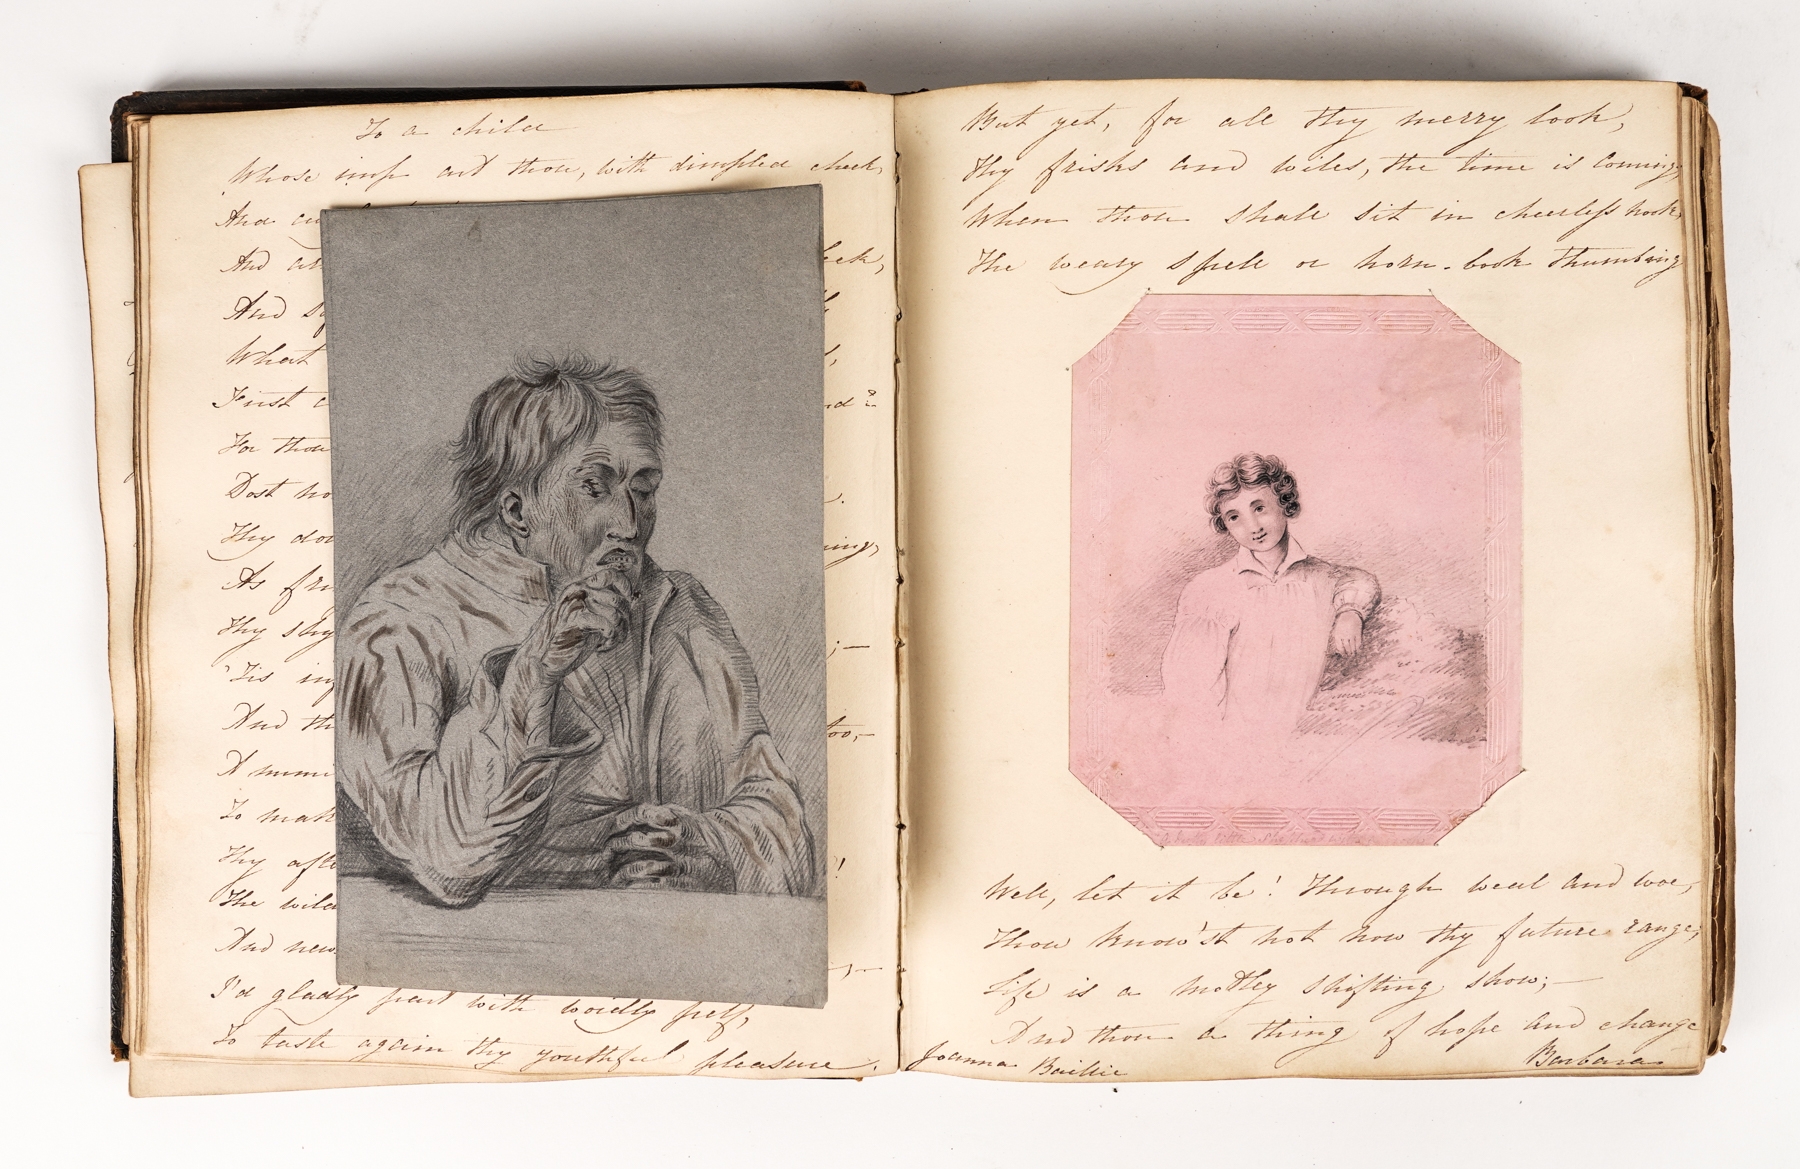 To a child
Whose imp art thou, with dimpled cheek,
And
And eek,
And
What
First nd?
For thou
Dost
Thy ing,
As
Thy
'Tis
And too,—
A
To
Thy !
The wild
And new
I'd gladly part with worldly pelf,
To taste again thy youthful pleasure.
But yet, for all thy merry look,
Thy frisks and wiles, the time is coming,
When thou shalt sit in cheerless nook,
The weary spell or horn-book thumbing
Well, let it be! Through weal and woe,
Thou know'st not now thy future range;
Life is a motley shifting show;—
And thou a thing of hope and change
Joanna Baillie Barbara